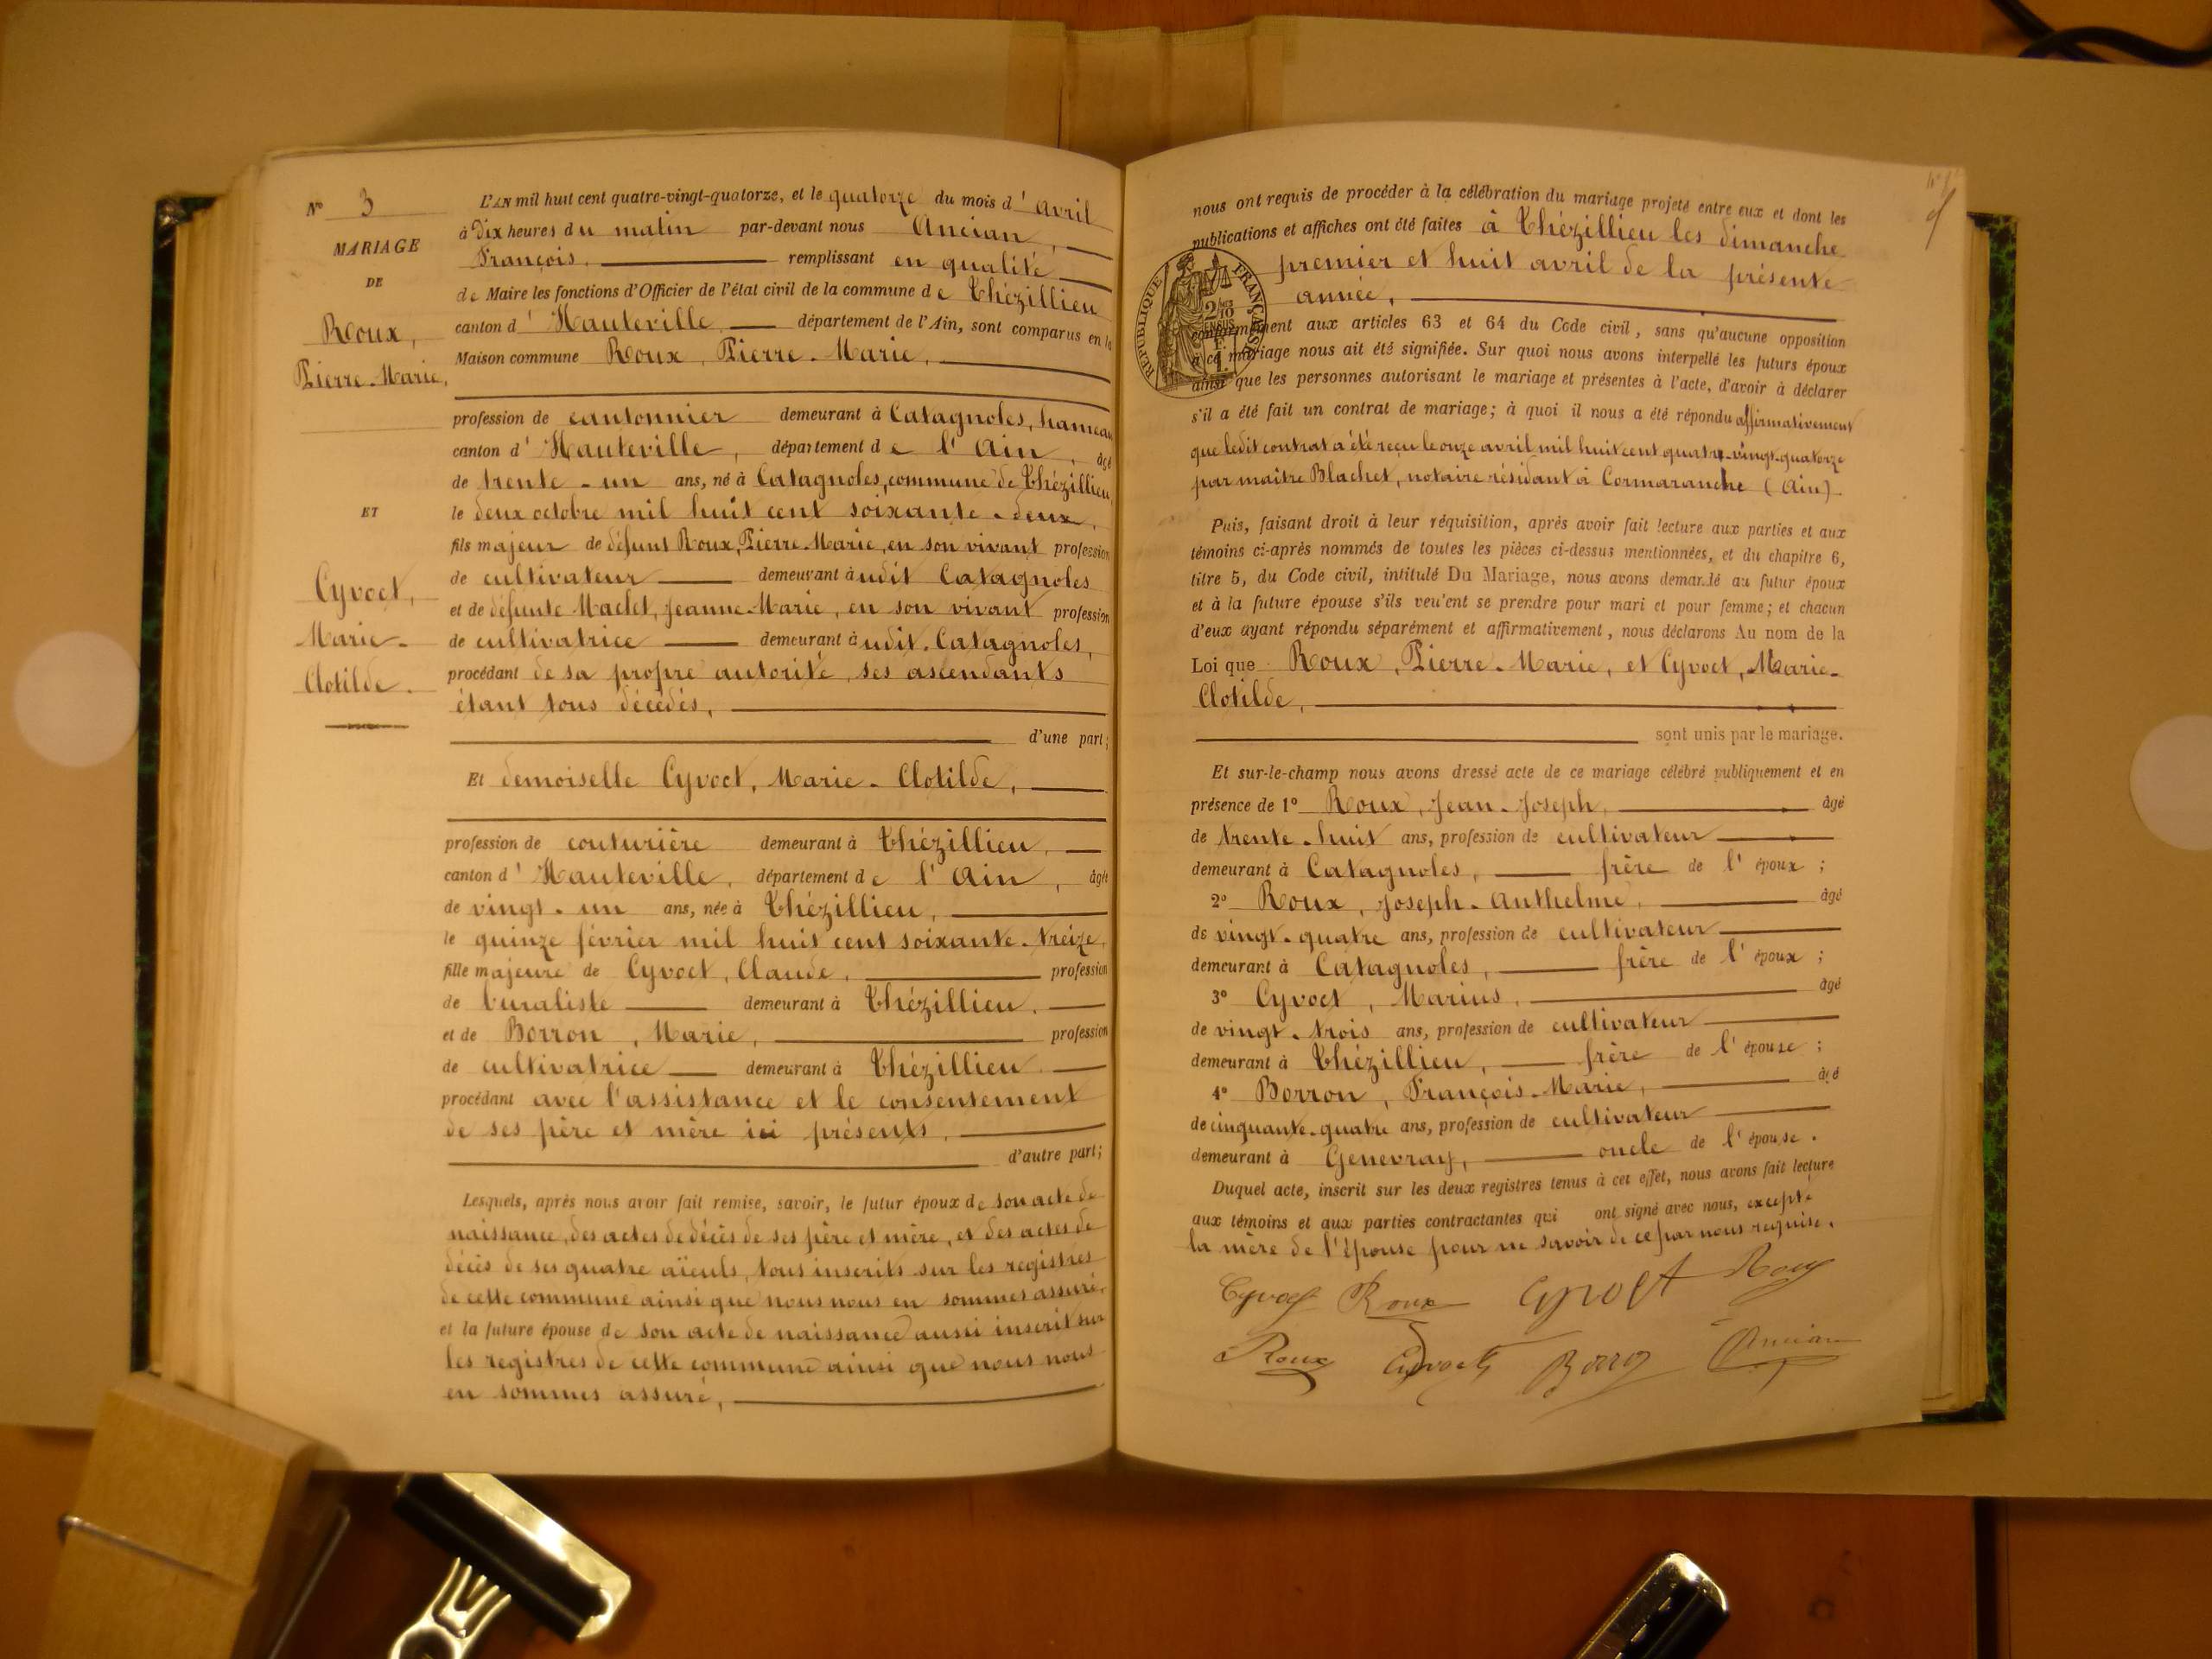 N° 3
MARIAGE
DE
Roux,
Pierre-Marie,
ET
Cyvoct,
Marie-
Clotilde.
L'AN mil huit cent quatre-vingt-quatorze, et le quatorze du mois d'avril
à dix heures du matin par-devant nous Ancian,
François, remplissant en qualité
de Maire les fonctions d'Officier de l'état civil de la commune de Thézillieu
canton d'Hauteville, département de l'Ain, sont comparus en la
Maison commune Roux, Pierre-Marie,
profession de cantonnier demeurant à Catagnoles, hameau
canton d'Hauteville, département de l'Ain, âgé
de trente-un ans, né à Catagnoles, commune de Thézillieu,
le deux octobre mil huit cent soixante-deux,
fils majeur de défunt Roux, Pierre-Marie, en son vivant profession
de cultivateur demeurant àudit Catagnoles
et de défunte Maclet, Jeanne-Marie, en son vivant profession
de cultivatrice demeurant àudit. Catagnoles,
procédant de sa propre autorité, ses ascendants
étant tous décédés,
d'une part;
Et demoiselle Cyvoct, Marie-Clotilde,
profession de couturière demeurant à Thézillieu,
canton d'Hauteville, département de l'Ain, âgée
de vingt-un ans, née à Thézillieu,
le quinze février mil huit cent soixante-treize,
fille majeure de Cyvoct, Claude, profession
de buraliste demeurant à Thézillieu.
et de Borron, Marie, profession
de cultivatrice demeurant à Thézillieu
procédant avec l'assistance et le consentement
de ses père et mère ici présents,
d'autre part;
Lesquels, après nous avoir fait remise, savoir, le futur époux de son acte de
naissance, des actes de décès de ses père et mère, et des actes de
décès de ses quatre aïeuls, tous inscrits sur les registres
de cette commune ainsi que nous nous en sommes assuré,
et la future épouse de son acte de naissance aussi inscrit sur
les registres de cette commune ainsi que nous nous
en sommes assuré,
nous ont requis de procéder à la célébration du mariage projeté entre eux et dont les
publications et affiches ont été faites à Thézillieu les dimanche
premier et huit avril de la présente
année,
RÉPUBLIQUE FRANÇAISE
conformément aux articles 63 et 64 du Code civil, sans qu'aucune opposition
à ce mariage nous ait été signifiée. Sur quoi nous avons interpellé les futurs époux
ainsi que les personnes autorisant le mariage et présentes à l'acte, d'avoir à déclarer
s'il a été fait un contrat de mariage; à quoi il nous a été répondu affirmativement
que ledit contrat a été reçu le onze avril mil huit cent quatre-vingt-quatorze
par maître Blachet, notaire résidant à Cormaranche (Ain)
Puis, faisant droit à leur réquisition, après avoir fait lecture aux parties et aux
témoins ci-après nommés de toutes les pièces ci-dessus mentionnées, et du chapitre 6,
titre 5, du Code civil, intitulé Du Mariage, nous avons demandé au futur époux
et à la future épouse s'ils veulent se prendre pour mari et pour femme; et chacun
d'eux ayant répondu séparément et affirmativement, nous déclarons Au nom de la
Loi que Roux, Pierre-Marie, et Cyvoct, Marie-
Clotilde,
sont unis par le mariage.
Et sur-le-champ nous avons dressé acte de ce mariage célébré publiquement et en
présence de 1° Roux, Jean-Joseph, âgé
de trente-huit ans, profession de cultivateur
demeurant à Catagnoles, frère de l'époux;
2° Roux, Joseph-Anthelme, âgé
de vingt-quatre ans, profession de cultivateur
demeurant à Catagnoles, frère de l'époux;
3° Cyvoct, Marius, âgé
de vingt-trois ans, profession de cultivateur
demeurant à Thézillieu, frère de l'épouse;
4° Borron, François-Marie, âgé
de cinquante-quatre ans, profession de cultivateur
demeurant à Genevray, oncle de l'épouse.
Duquel acte, inscrit sur les deux registres tenus à cet effet, nous avons fait lecture
aux témoins et aux parties contractantes qui ont signé avec nous, excepté
la mère de l'épouse pour ne savoir de ce par nous requise.
Cyvoct Roux Cyvoct Roux
Roux Cyvoct Borron Ancian